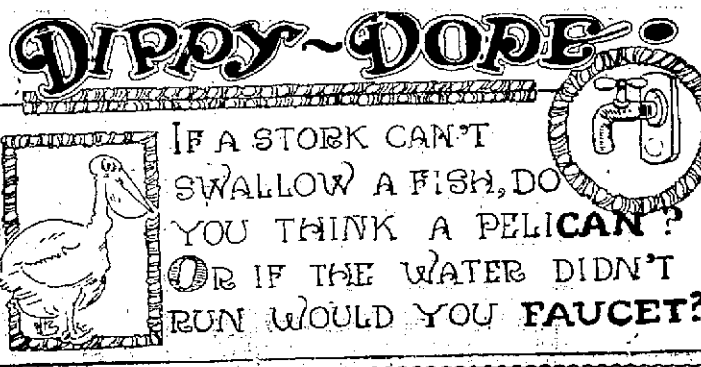 DIPPY~DOPE.
IF A STORK CAN'T
SWALLOW A FISH, DO
YOU THINK A PELICAN?
OR IF THE WATER DIDN'T
RUN WOULD YOU FAUCET?